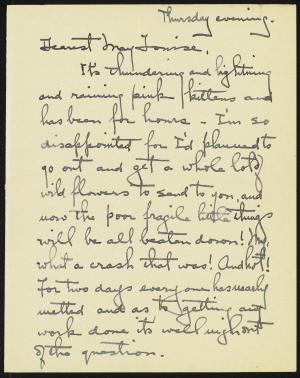 Thursday evening.
Dearest May Louise,
It's thundering and lightning
and raining pink kittens and
has been for hours - I'm so
disappointed for I'd planned to
go out and get a whole lot of
wild flowers to send to you, and
now the poor fragile little things
will be all beaten down! My,
what a crash that was! And hot!
For two days everyone has nearly
melted and as to getting any
work done it's well nigh out
of the question.